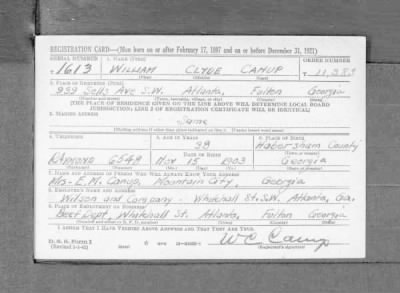 REGISTRATION CARD—(Men born on or after February 17, 1897 and on or before December 31, 1921)
SERIAL NUMBER 1. NAME (Print) ORDER NUMBER
T 1613 WILLIAM CLYDE CAMP T 11,383
(First) (Middle) (Last)
2. PLACE OF RESIDENCE (Print)
959 Sells Ave S.W. Atlanta, Fulton Georgia
(Number and street) (Town, township, village, or city) (County) (State)
[THE PLACE OF RESIDENCE GIVEN ON THE LINE ABOVE WILL DETERMINE LOCAL BOARD
JURISDICTION; LINE 2 OF REGISTRATION CERTIFICATE WILL BE IDENTICAL]
3. MAILING ADDRESS
Same
[Mailing address if other than place indicated on line 2. If same insert word same]
4. TELEPHONE 5. AGE IN YEARS 6. PLACE OF BIRTH
38 Habersham County
DATE OF BIRTH
Raymond 6549 Nov 15 1903 Georgia
7. NAME AND ADDRESS OF PERSON WHO WILL ALWAYS KNOW YOUR ADDRESS
Mrs. E.M. Camp, Mountain City, Georgia
8. EMPLOYER'S NAME AND ADDRESS
Wilson and Company - Whitehall St. S.W. Atlanta, Ga.
9. PLACE OF EMPLOYMENT OR BUSINESS
Beef Dept. Whitehall St. Atlanta, Fulton Georgia
(Number and street or R. F. D. number) (Town) (County) (State)
I AFFIRM THAT I HAVE VERIFIED ABOVE ANSWERS AND THAT THEY ARE TRUE.
D. S. S. Form 1
(Revised 1-1-42) W C Camp
(Registrant's signature)